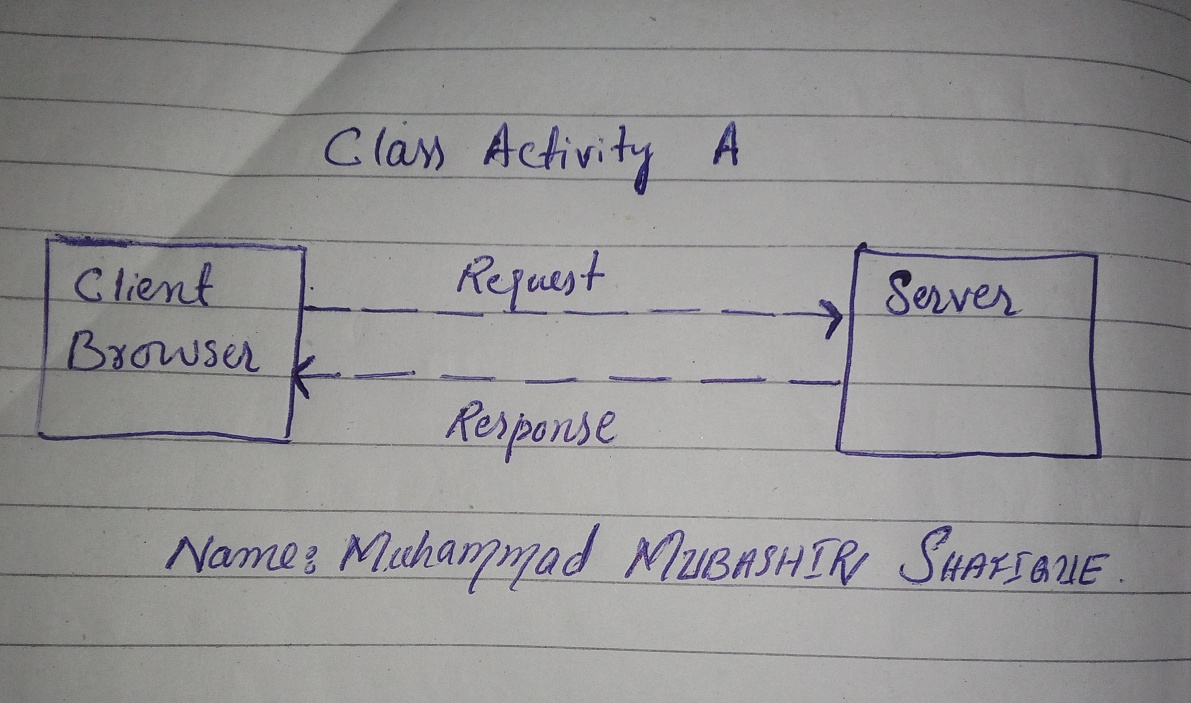 Class Activity A
Client
Browser
Request
Server
Response
Name: Muhammad MUBASHIR SHAFIQUE.